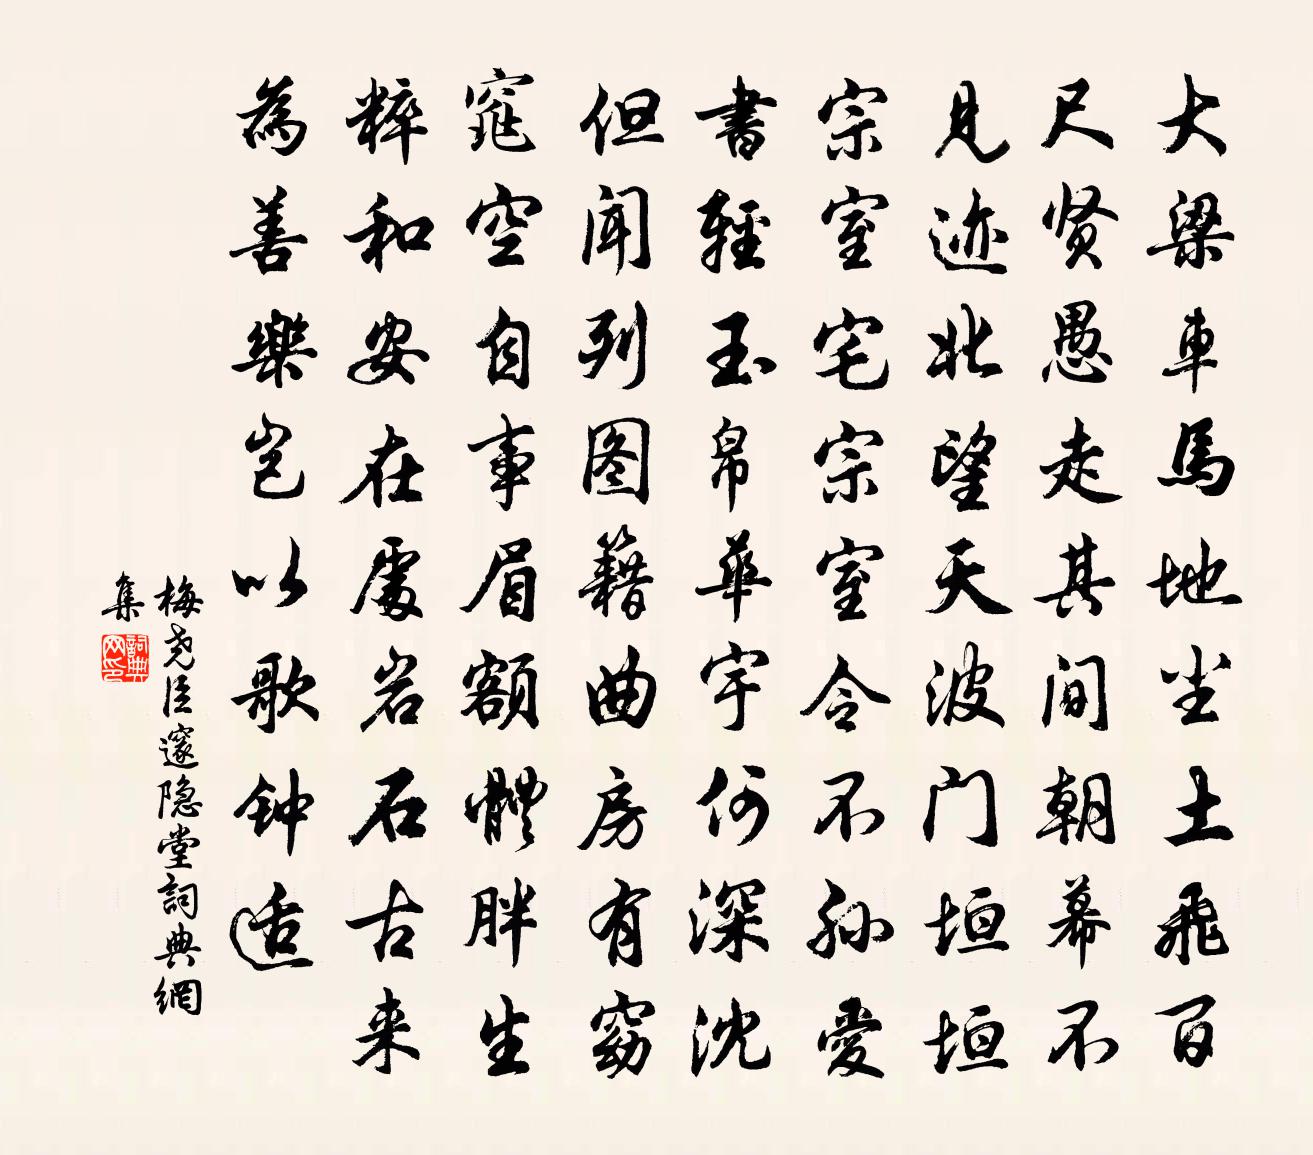 大梁車馬地尘土飛百
尺贤愚走其间朝幕不
見迹北望天波门垣垣
宗室宅宗室令不孙愛
書輕玉帛華宇何深沈
但闻列图籍曲房有窈
窕空自事眉額體胖生
粹和安在處岩石古来
為善樂岂以歌钟适
梅尧臣邃隐堂詞典網
集
詞典网印